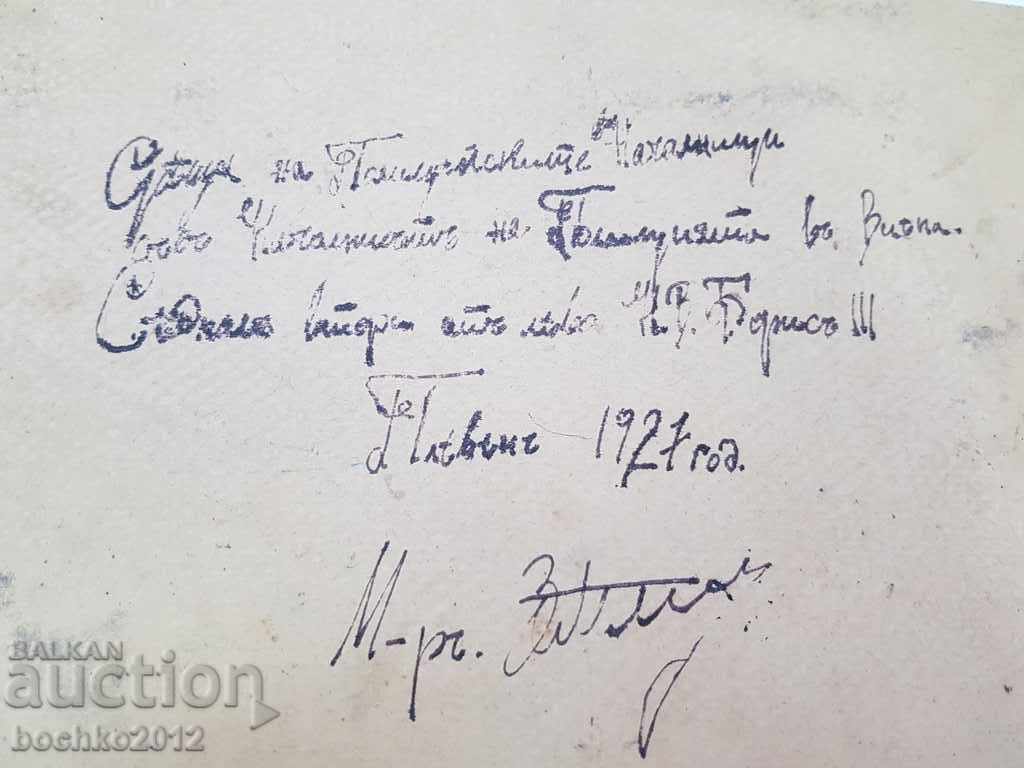 Срѣща на Полицейскитѣ Началници
съсъ Началникътъ на Полицията въ Виена.
Седналъ втори отъ лѣво Н.В. Борисъ III
Плѣвенъ 1927 год.
М-ръ.
BALKAN
auction
bochko2012